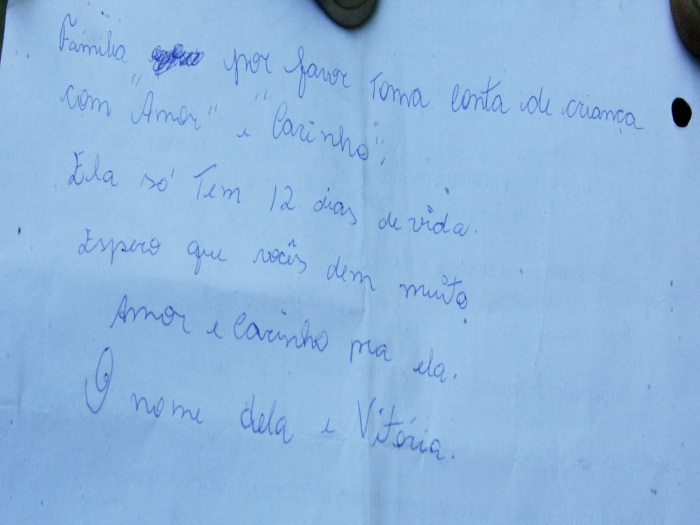 Familia por favor Toma conta de criança
com "Amor" e "Carinho",
Ela só Tem 12 dias de vida.
Espero que vocês dem muito
Amor e Carinho pra ela.
O nome dela e Vitória.